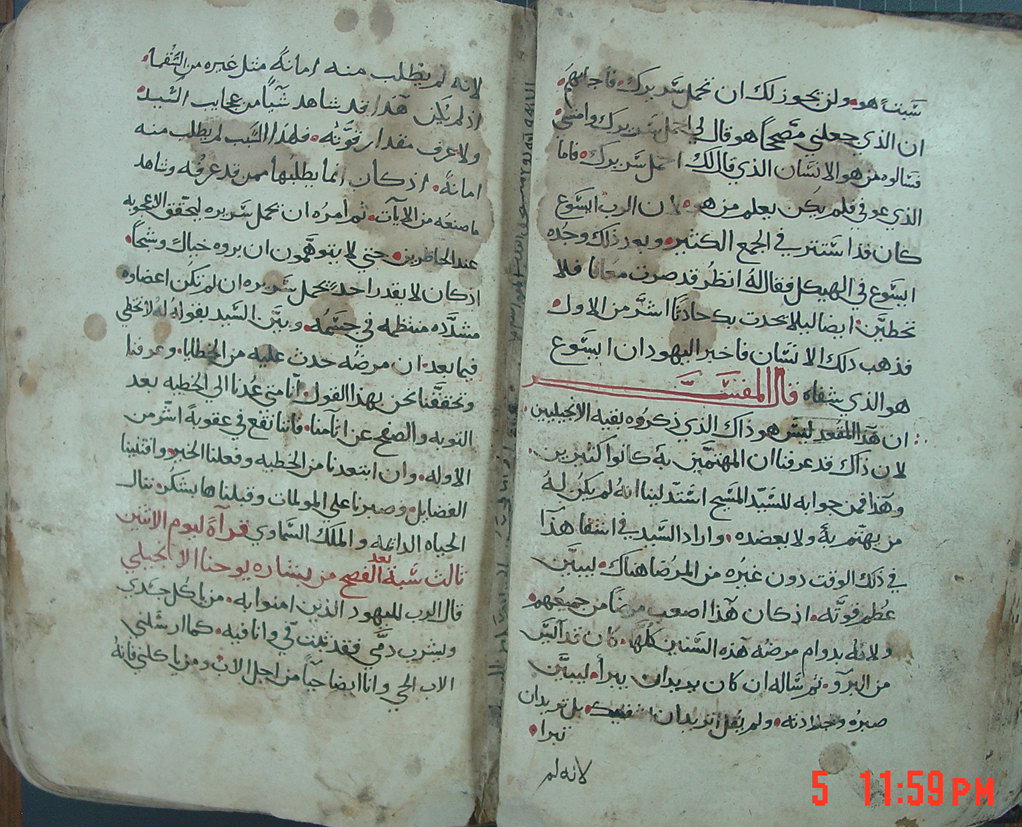 سبتاً هو ولن يجوز لك ان تحمل سريرك فاجابهم
ان الذي جعلني مصححاً هو قال لي احمل سريرك وامشي
فسالوه من هو الانسان الذي قال لك احمل سريرك فاما
الذي عوفي فلم يكن يعلم من هو لان الرب ايسوع
كان قد استتر في الجمع الكثير وبعد ذلك وجده
ايسوع في الهيكل فقال له انظر قد صرت معافا فلا
تخطين ايضا ليلا يحدث بك حادثا اشر من الاول
فذهب ذلك الانسان فاخبر اليهود ان ايسوع
هو الذي شفاه قال المفسر
ان هذا المقعد ليس هو ذاك الذي ذكروه بقيه الانجيليين
لان ذاك قد عرفنا ان المهتمين به كانوا كثيرين
وهذا فمن جوابه للسيد المسيح استدلينا انه لم يكن له
من يهتم به ولا يعضده واراد السيد في انتقا هذا
في ذلك الوقت دون غيره من المرضا هناك ليبين
عظم قوته اذ كان هذا اصعب مرضا من جميعهم
ولانه بدوام مرضه هذه السنين كلها كان قد ايس
من البرو ثم ساله ان كان يريد ان يبرا ليبين
صبره وجلادته ولم يقل اتريد ان اشفيك بل تريد ان
تبرا
لانه لم
لانه لم يطلب منه امانه مثل غيره من السقما
اذ لم يكن هذا قد شاهد شياً من عجايب السيد
ولا عرف مقدار قوته فلهذا السبب لم يطلب منه
امانه اذ كان انما يطلبها ممن قد عرفه وشاهد
ما صنعه من الايات ثم امره ان يحمل سريره ليحقق الاعجوبه
عند الحاظرين حتي لا يتوهمون ان يروه خيالا وشبحا
اذ كان لا يقدر احد يحمل سريره ان لم تكن اعضاوه
مشدده منتظمه في جسمه وبين السيد بقوله له لا تخطي
فيما بعد ان مرضه حدث عليه من الخطايا وعرفنا
وتحققنا نحن بهذا القول اننا متي عدنا الى الخطيه بعد
التوبه والصفح عن اثامنا فاننا نقع في عقوبة اشر من
الاوله وان ابتعدنا من الخطيه وفعلنا الخير واقتنينا
الفضايل وصبرنا علي المولمات وقبلناها بشكر ننال
الحياه الدايمه والملك السماوي قرآة ليوم الاثنين
ثالث سبة بعد الفصح من بشاره يوحنا الانجيلي
قال الرب لليهود الذين امنوا به من ياكل جسدي
ويشرب دمي فقد ثبت في وانا فيه كما ارسلني
الاب الحي وانا ايضا حياً من اجل الاب ومن ياكلني فانه
5 11:59 PM